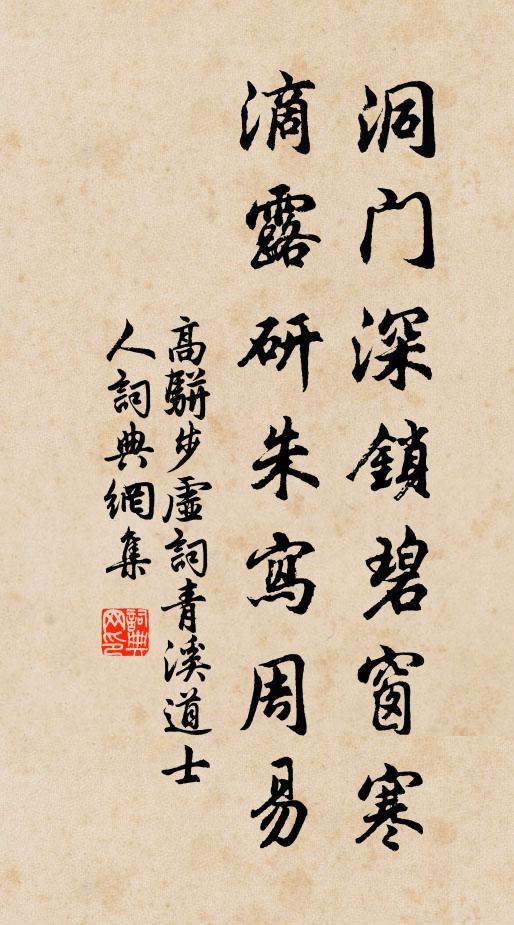 洞门深鎖碧窗寒
滴露研朱寫周易
高駢步虛詞青溪道士
人詞典網集
詞典网印